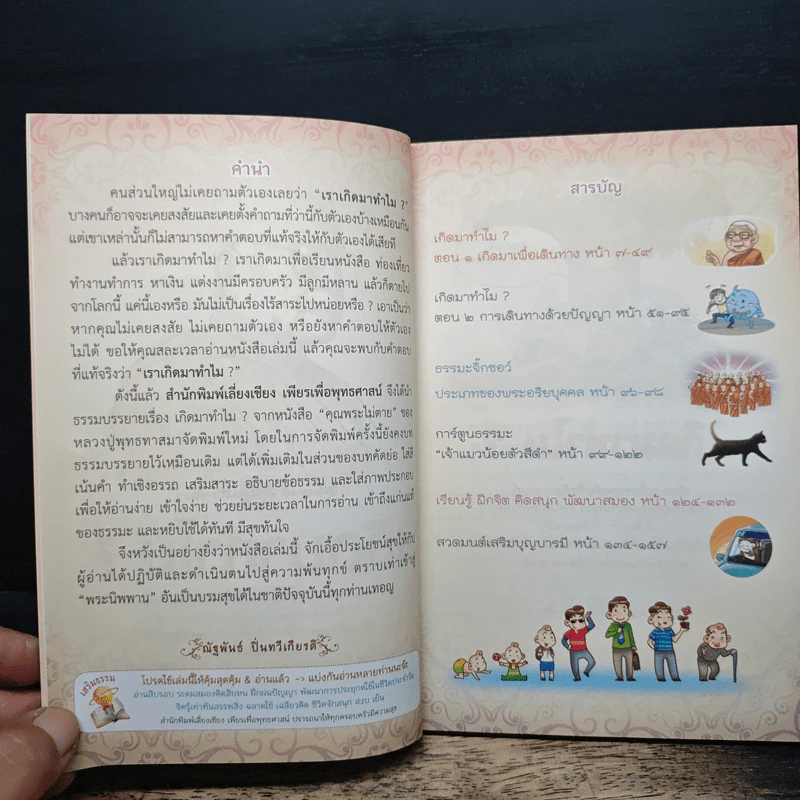 คำนำ
คนส่วนใหญ่ไม่เคยถามตัวเองเลยว่า “เราเกิดมาทำไม ?”
บางคนก็อาจจะเคยสงสัยและเคยตั้งคำถามที่ว่านี้กับตัวเองบ้างเหมือนกัน
แต่เขาเหล่านั้นก็ไม่สามารถหาคำตอบที่แท้จริงให้กับตัวเองได้เสียที
แล้วเราเกิดมาทำไม ? เราเกิดมาเพื่อเรียนหนังสือ ท่องเที่ยว
ทำงานทำการ หาเงิน แต่งงานมีครอบครัว มีลูกมีหลาน แล้วก็ตายไป
จากโลกนี้ แค่นี้เองหรือ มันไม่เป็นเรื่องไร้สาระไปหน่อยหรือ ? เอาเป็นว่า
หากคุณไม่เคยสงสัย ไม่เคยถามตัวเอง หรือยังหาคำตอบให้ตัวเอง
ไม่ได้ ขอให้คุณสละเวลาอ่านหนังสือเล่มนี้ แล้วคุณจะพบกับคำตอบ
ที่แท้จริงว่า “เราเกิดมาทำไม ?”
ดังนี้แล้ว สำนักพิมพ์เลี่ยงเชียง เพียรเพื่อพุทธศาสน์ จึงได้นำ
ธรรมบรรยายเรื่อง เกิดมาทำไม ? จากหนังสือ “คุณพระไม่ตาย” ของ
หลวงปู่พุทธทาสมาจัดพิมพ์ใหม่ โดยในการจัดพิมพ์ครั้งนี้ยังคงบท
ธรรมบรรยายไว้เหมือนเดิม แต่ได้เพิ่มเติมในส่วนของบทคัดย่อ ใส่สี
เน้นคำ ทำเชิงอรรถ เสริมสาระ อธิบายข้อธรรม และใส่ภาพประกอบ
เพื่อให้อ่านง่าย เข้าใจง่าย ช่วยย่นระยะเวลาในการอ่าน เข้าถึงแก่นแท้
ของธรรมะ และหยิบใช้ได้ทันที มีสุขทันใจ
จึงหวังเป็นอย่างยิ่งว่าหนังสือเล่มนี้ จักเอื้อประโยชน์สุขให้กับ
ผู้อ่านได้ปฏิบัติและดำเนินตนไปสู่ความพ้นทุกข์ ตราบเท่าเข้าสู่
“พระนิพพาน” อันเป็นบรมสุขได้ในชาติปัจจุบันนี้ทุกท่านเทอญ
ณัฐพันธ์ ปิ่นทวีเกียรติ
เสริมธรรม
โปรดใช้เล่มนี้ให้คุ้มสุดคุ้ม & อ่านแล้ว -> แบ่งกันอ่านหลายท่านนะจ๊ะ
อ่านสิบรอบ ระดมสมองคิดสิบหน ฝึกฝนปัญญา พัฒนาการประยุกต์ใช้ในชีวิตประจำวัน
จิตรู้เท่าทันสรรพสิ่ง ฉลาดใช้ เฉลียวคิด ชีวิตจักสนุก สงบ เย็น
สำนักพิมพ์เลี่ยงเชียง เพียรเพื่อพุทธศาสน์ ปรารถนาให้ทุกครอบครัวมีความสุข
สารบัญ
เกิดมาทำไม ?
ตอน ๑ เกิดมาเพื่อเดินทาง หน้า ๗-๔๙
เกิดมาทำไม ?
ตอน ๒ การเดินทางด้วยปัญญา หน้า ๕๑-๙๕
ธรรมะจิ๊กซอว์
ประเภทของพระอริยบุคคล หน้า ๙๖-๙๘
การ์ตูนธรรมะ
“เจ้าแมวน้อยตัวสีดำ” หน้า ๙๙-๑๒๒
เรียนรู้ ฝึกจิต คิดสนุก พัฒนาสมอง หน้า ๑๒๔-๑๓๒
สวดมนต์เสริมบุญบารมี หน้า ๑๓๔-๑๕๗